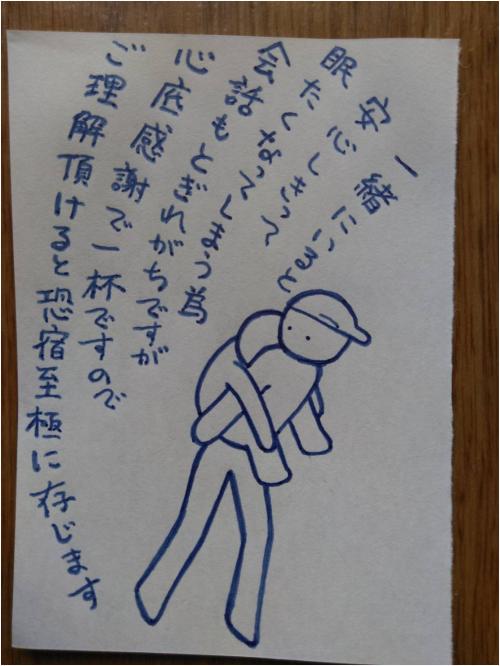 一緒にいると
安心しきって
眠たくなってしまう為
会話もとぎれがちですが
心底感謝で一杯ですので
ご理解頂けると恐宿至極に存じます